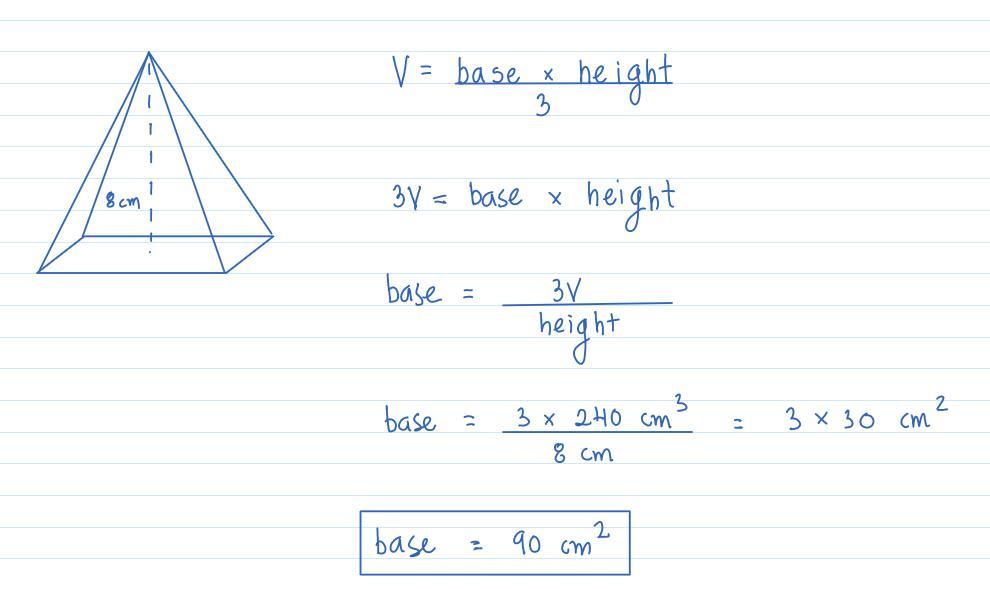 8 cm
V = base × height
3
3V = base × height
base = 3V
height
base = 3 × 240 cm³ = 3 × 30 cm²
8 cm
base = 90 cm²